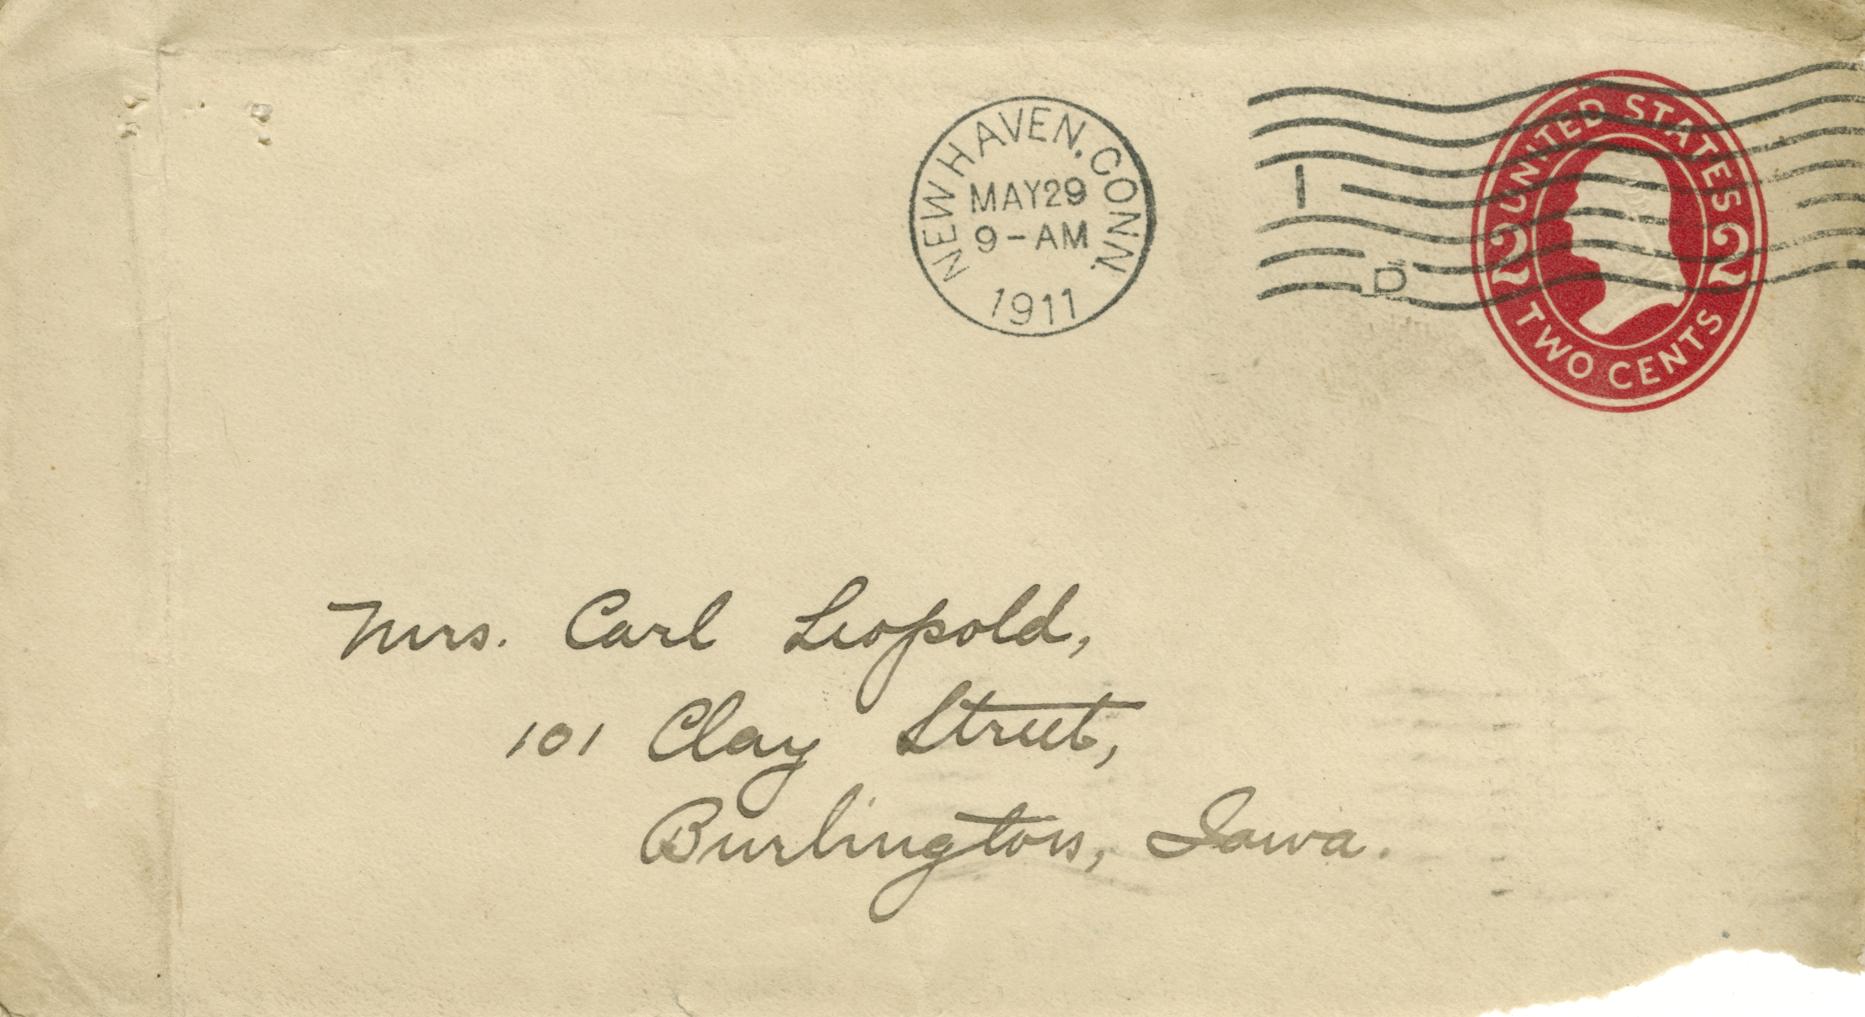 NEW HAVEN, CONN.
MAY 29
9-AM
1911
1
D
UNITED STATES
2 2
TWO CENTS
Mrs. Carl Leopold,
101 Clay Street,
Burlington, Iowa.